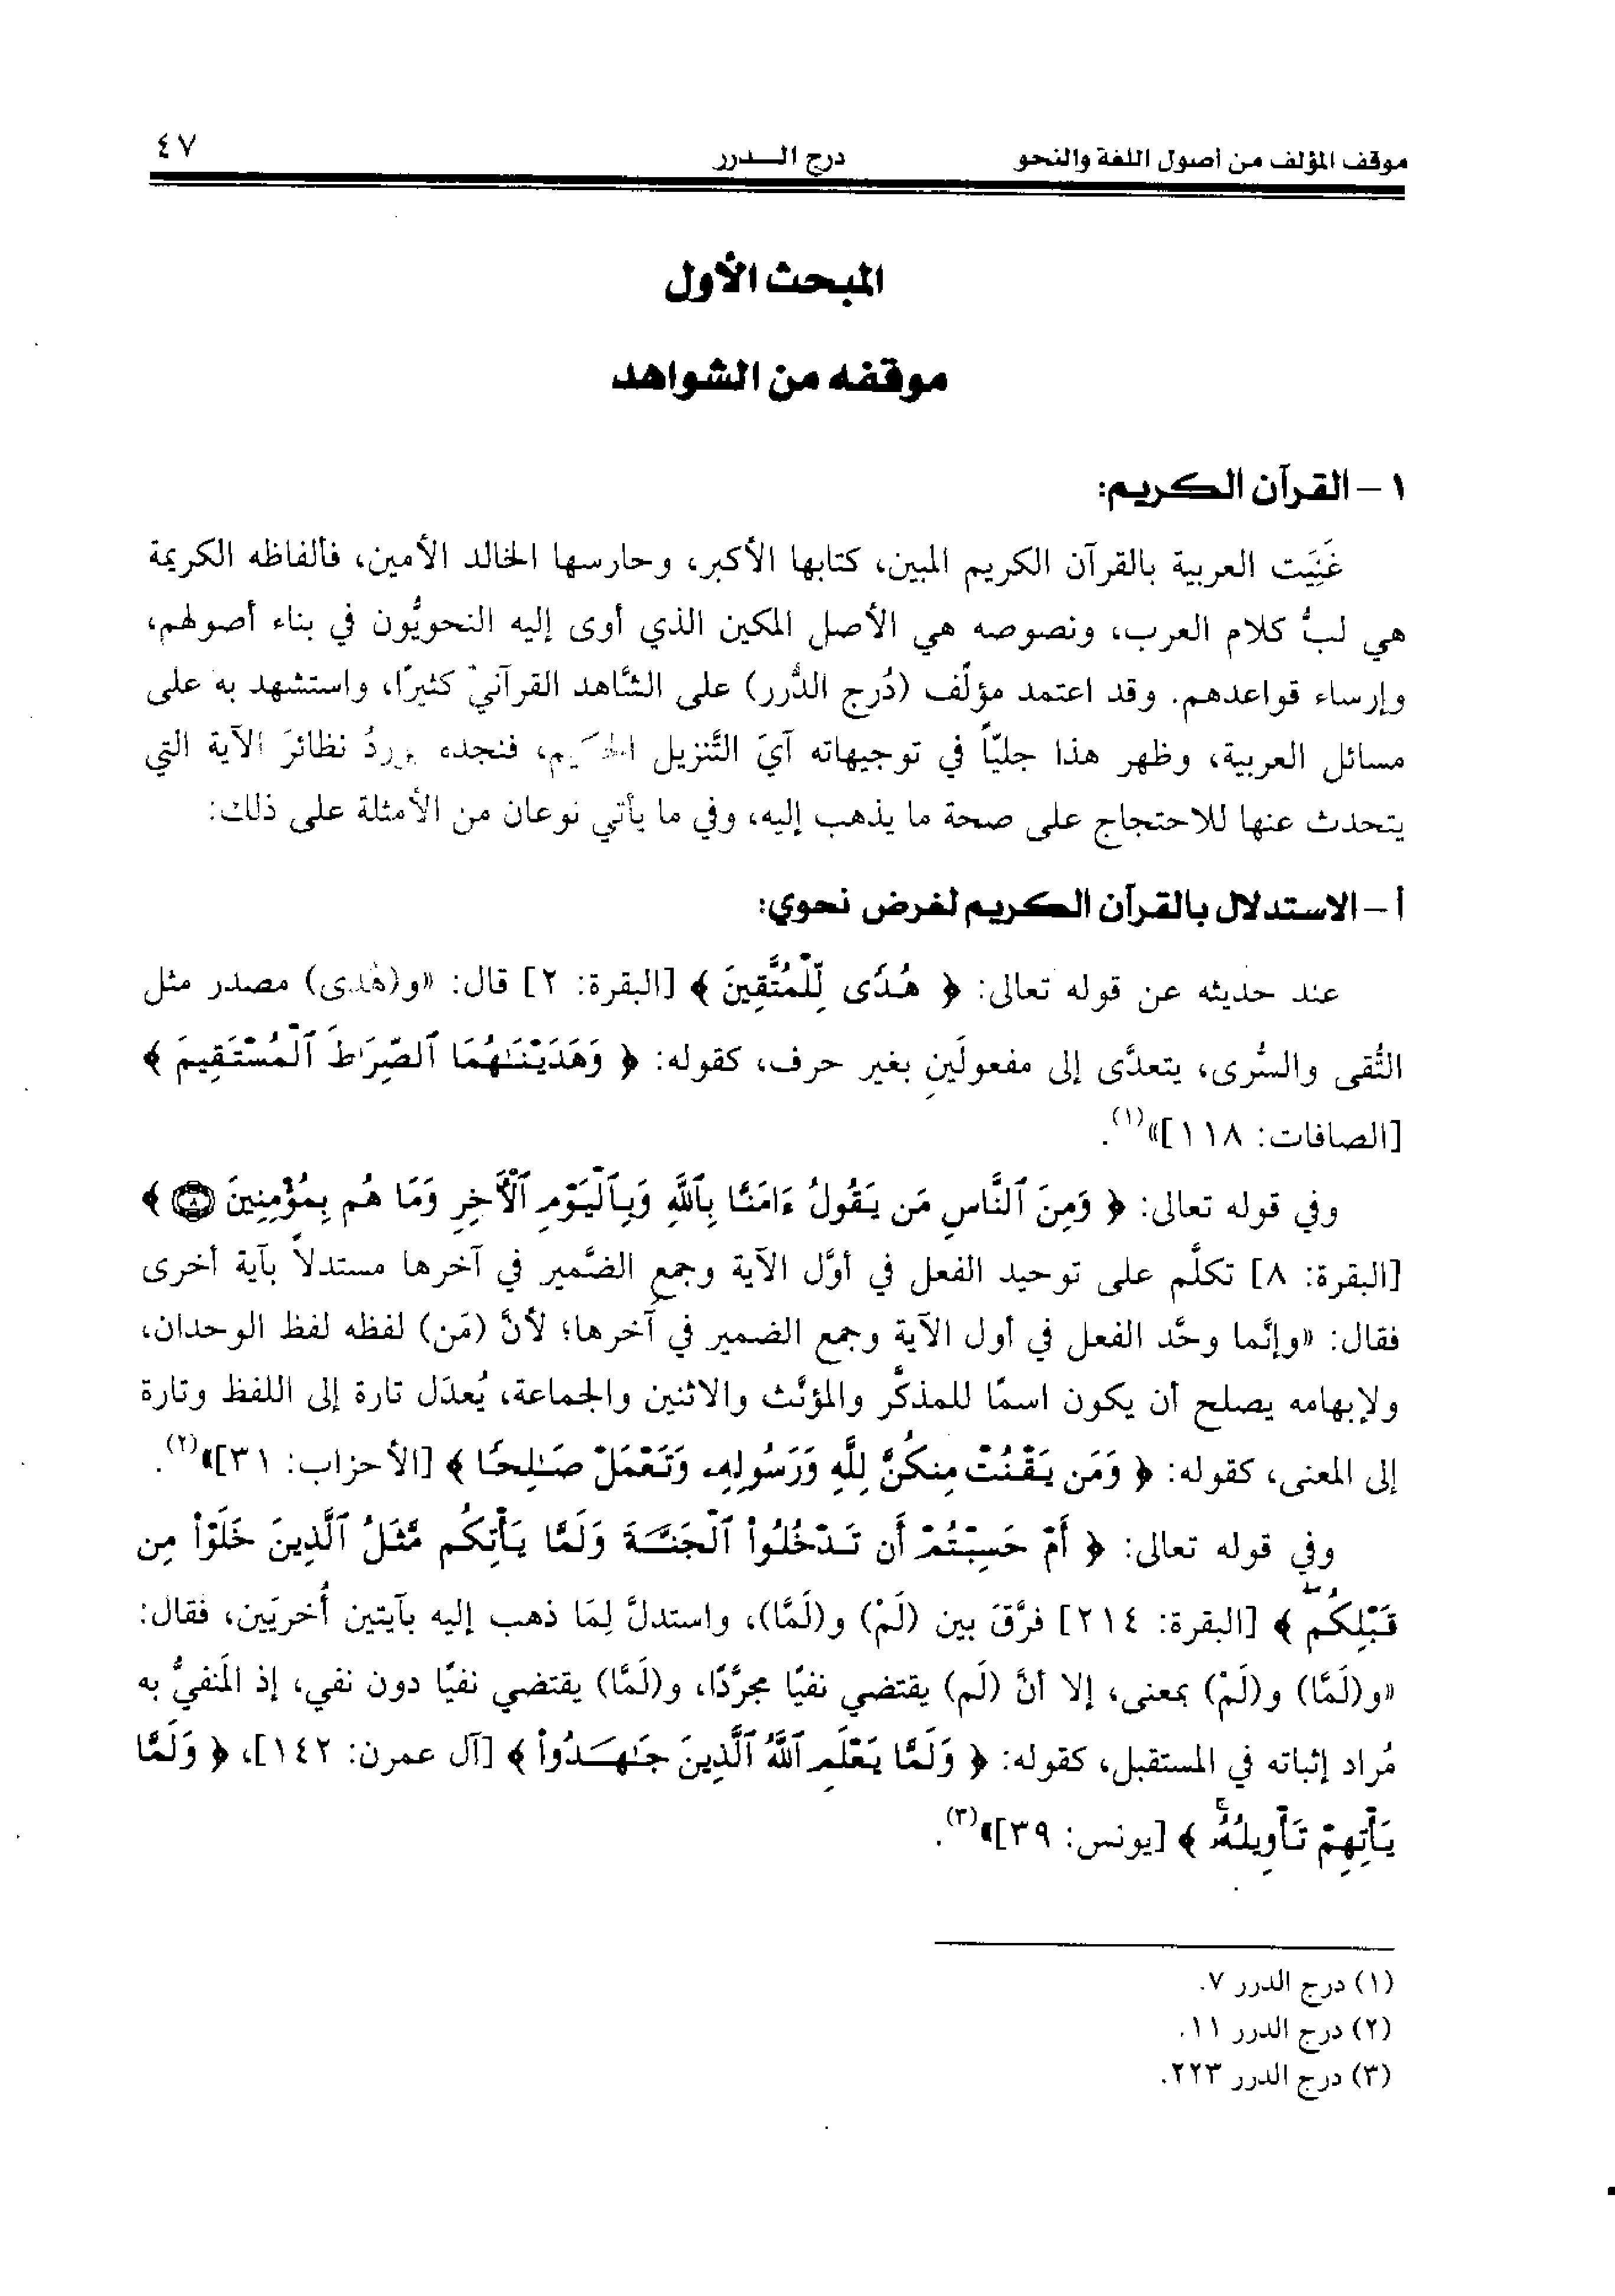 موقف المؤلف من أصول اللغة والنحو درج الـــدرر ٤٧
المبحث الأول
موقفه من الشواهد
١ – القرآن الكريم:
غَنِيَت العربية بالقرآن الكريم المبين، كتابها الأكبر، وحارسها الخالد الأمين، فألفاظه الكريمة
هي لبُّ كلام العرب، ونصوصه هي الأصل المكين الذي أوى إليه النحويُّون في بناء أصولهم،
وإرساء قواعدهم. وقد اعتمد مؤلِّف (دُرج الدُّرر) على الشَّاهد القرآنيّ كثيرًا، واستشهد به على
مسائل العربية، وظهر هذا جليّاً في توجيهاته آيَ التَّنزيل الحكيم، فنجده يوردُ نظائرَ الآية التي
يتحدث عنها للاحتجاج على صحة ما يذهب إليه، وفي ما يأتي نوعان من الأمثلة على ذلك:
أ – الاستدلال بالقرآن الكريم لغرض نحوي:
عند حديثه عن قوله تعالى: ﴿ هُدًى لِّلْمُتَّقِينَ ﴾ [البقرة: ٢] قال: «و(هُدى) مصدر مثل
التُّقى والسُّرى، يتعدَّى إلى مفعولَينِ بغير حرف، كقوله: ﴿ وَهَدَيْنَٰهُمَا ٱلصِّرَٰطَ ٱلْمُسْتَقِيمَ ﴾
[الصافات: ١١٨]»(١).
وفي قوله تعالى: ﴿ وَمِنَ ٱلنَّاسِ مَن يَقُولُ ءَامَنَّا بِٱللَّهِ وَبِٱلْيَوْمِ ٱلْأَخِرِ وَمَا هُم بِمُؤْمِنِينَ ٨ ﴾
[البقرة: ٨] تكلَّم على توحيد الفعل في أوَّل الآية وجمع الضَّمير في آخرها مستدلاً بآية أخرى
فقال: «وإنَّما وحَّد الفعل في أول الآية وجمع الضمير في آخرها؛ لأنَّ (مَن) لفظه لفظ الوحدان،
ولإبهامه يصلح أن يكون اسمًا للمذكَّر والمؤنَّث والاثنين والجماعة، يُعدَل تارة إلى اللفظ وتارة
إلى المعنى، كقوله: ﴿ وَمَن يَقْنُتْ مِنكُنَّ لِلَّهِ وَرَسُولِهِۦ وَتَعْمَلْ صَٰلِحًا ﴾ [الأحزاب: ٣١]»(٢).
وفي قوله تعالى: ﴿ أَمْ حَسِبْتُمْ أَن تَدْخُلُوا۟ ٱلْجَنَّةَ وَلَمَّا يَأْتِكُم مَّثَلُ ٱلَّذِينَ خَلَوْا۟ مِن
قَبْلِكُم ﴾ [البقرة: ٢١٤] فرَّقَ بين (لَمْ) و(لَمَّا)، واستدلَّ لِمَا ذهب إليه بآيتين أُخريَين، فقال:
«و(لَمَّا) و(لَمْ) بمعنى، إلا أنَّ (لَم) يقتضي نفيًا مجرَّدًا، و(لَمَّا) يقتضي نفيًا دون نفي، إذ المَنفيُّ به
مُراد إثباته في المستقبل، كقوله: ﴿ وَلَمَّا يَعْلَمِ ٱللَّهُ ٱلَّذِينَ جَٰهَدُوا۟ ﴾ [آل عمرن: ١٤٢]، ﴿ وَلَمَّا
يَأْتِهِمْ تَأْوِيلُهُۥ ﴾ [يونس: ٣٩]»(٣).
(١) درج الدرر ٧.
(٢) درج الدرر ١١.
(٣) درج الدرر ٢٢٣.